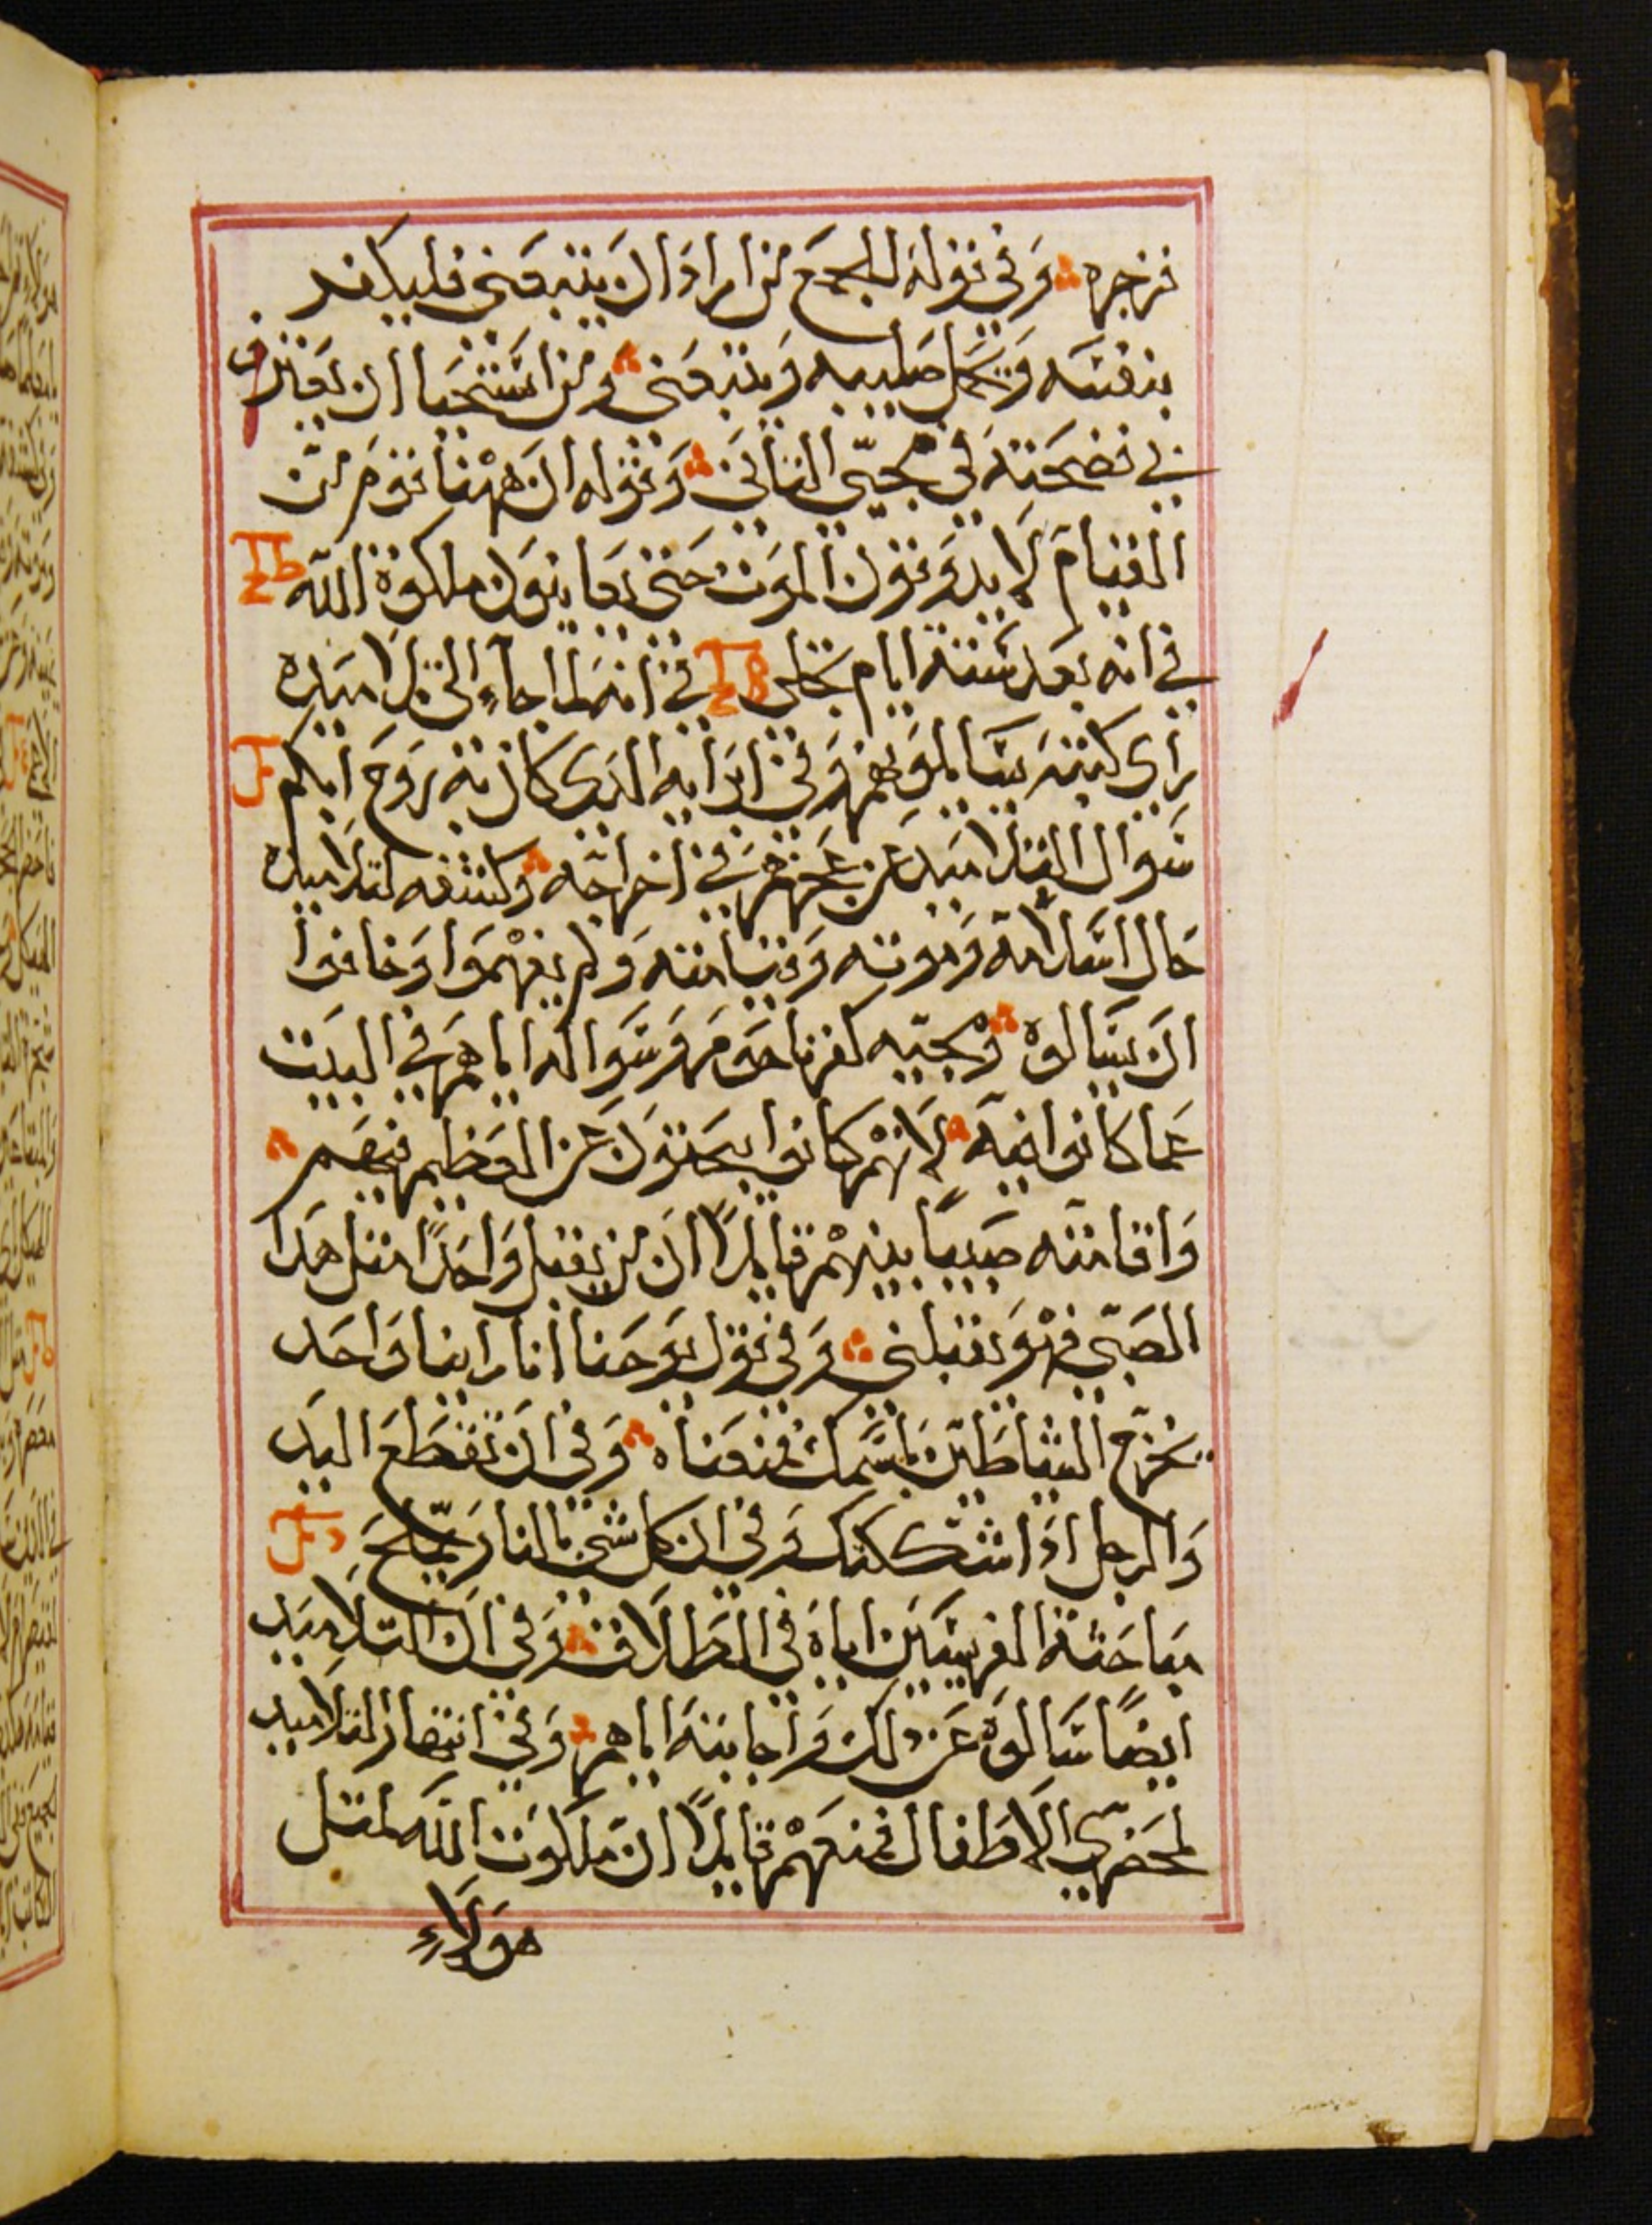 فزجره وَفي قوله للجمَع من اراد ان يتبعَني فليكفر
بنفسَه وَيحَمل صَليبه وَيتبعَني ومن اسَتحَيا ان يعَترف
بي فضحَته في مجيّي التاني وَقوله ان ههْنا قوم من
القيام لا يدوَقون الموَت حَتى يعَاينوَن ملكوة اللّه
في انه بعَد ستة ايام تجَلى في انه لما جآءِ الى تلاميَده
راي كتبَه يسَالموَنهم وَفي ابرايه الدى كان به روَح ابكم
سَوال التلاميَد عَن عَجزهم في اخراجَه وكشفه لتلاميده
حَال اسَلامه وَموته وَقيامته وَلم يفهْموَا وَخافوا
ان يسَالوه وْمجيّه كفرناحوَم وَسَواله اياهم في البيَت
عَما كانوا فيَه لانهْم كانوا يبحَتوَن عَن العَظيم فيهم
وَاقامته صَبيًا بينهْم قايلًا ان من يقبل وَاحَدًا متل هدَا
الصَبّي فهْوَ يقبلني وَفي قوَل يوَحَنا انا راينا وَاحَد
يخرَج الشيَاطيَن باسَمك فمنعَناه وَفي ان تقطَع اليَد
وَالرجل ادَا شككتك وَفي ان كل شي بالنار يمّلحَ
مبَاحَثة الفريسَيَن اياهَ في الطلاق وَفي ان التلاميَد
ايضًا سَالوَه عَن دلك وَاجابتهَ اياهم وَفي انتهار التلاميد
لمحَضري الاطفال فمنعَهْم قايلًا ان ملكوَت اللّه لمتل
هوَلاءِ